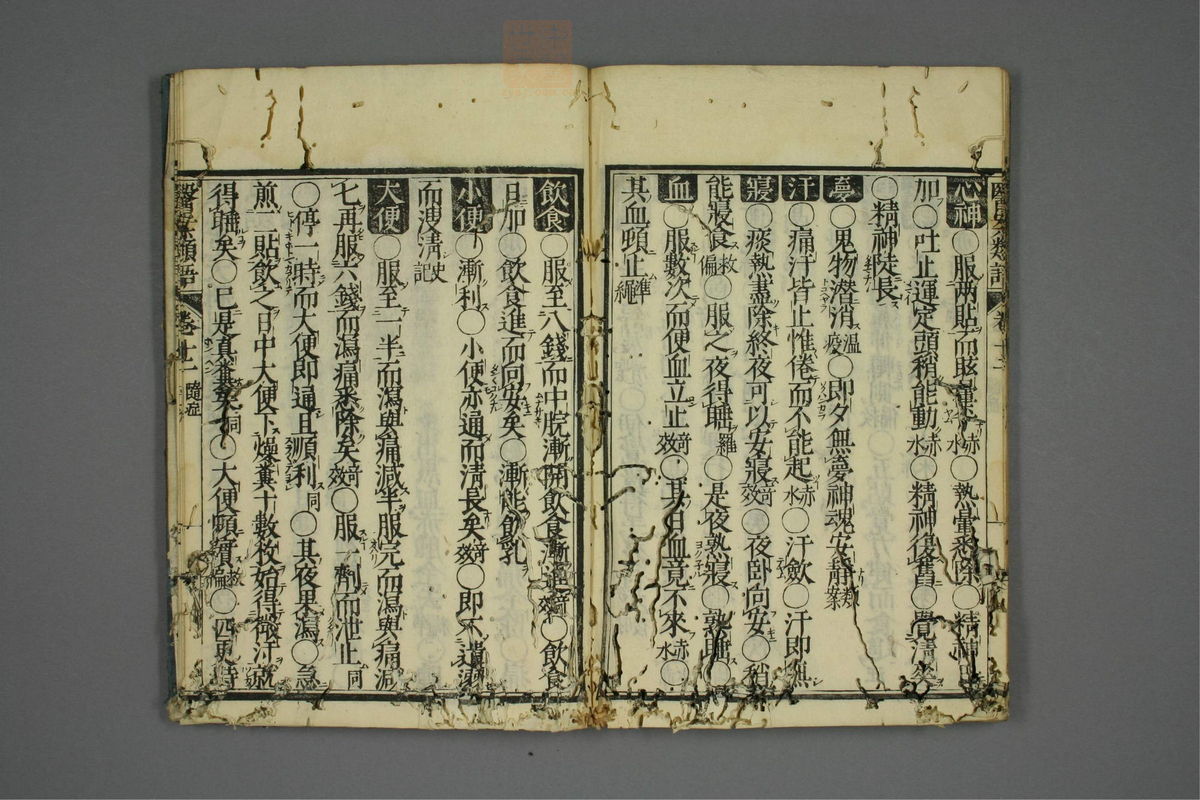 心神○服兩貼而眩運○熱嘔悉除○精神日
加○吐止運定頭稍能動赤水○精神復舊○覺清
○精神陡長
夢○鬼物潜消温疫○即夕無夢神魂安靜類案
汗○痛汗皆止惟倦而不能起赤水○汗歛○汗即無
寢○痰熱盡除終夜可以安寢竒效○夜卧向安○稍
能寢食救偏○服之夜得睡羅○是夜熟寢○熟睡○
血○服數次而便血立止竒效○其日血竟不來赤水○
其血頓止準繩
飲食○服至八錢而中脘漸開飲食漸進竒效○飲食
日加○飲食進而向安矣○漸能飲乳
小便○漸利○小便亦通而清長矣竒效○即不遺溺
而溲清史記
大便○服至一半而瀉與痛減半服完而瀉與痛減
七再服六錢而瀉痛悉除矣竒效○服一劑而泄止同
○停一時而大便即通且順利同○其夜果瀉○急
煎二貼飲之日中大便下燥糞十數枚始得微汗
得睡矣○已是真糞矣同○大便頓實救偏○四更時
醫案類語
卷十二
隨症